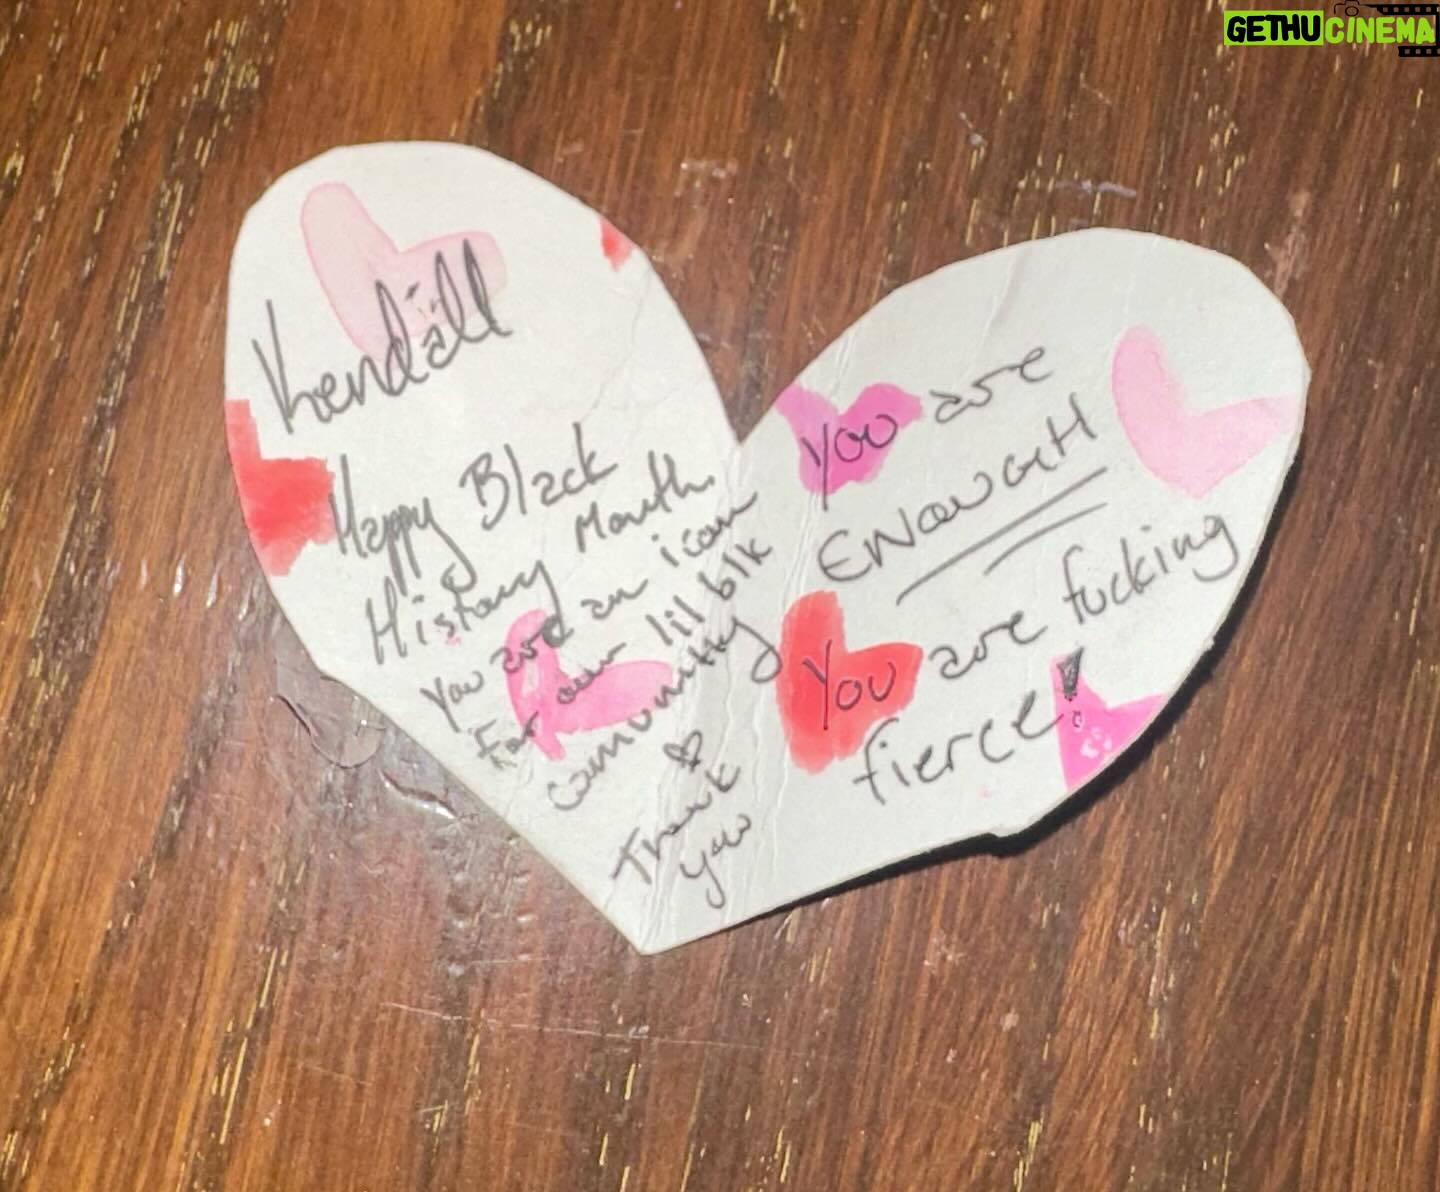 GETHUCINEMA
Kendäll
Happy Black
History Month
You are an icon
for our lil blk
community
Thank
you
You are
ENOUGH
You are fucking
fierce!